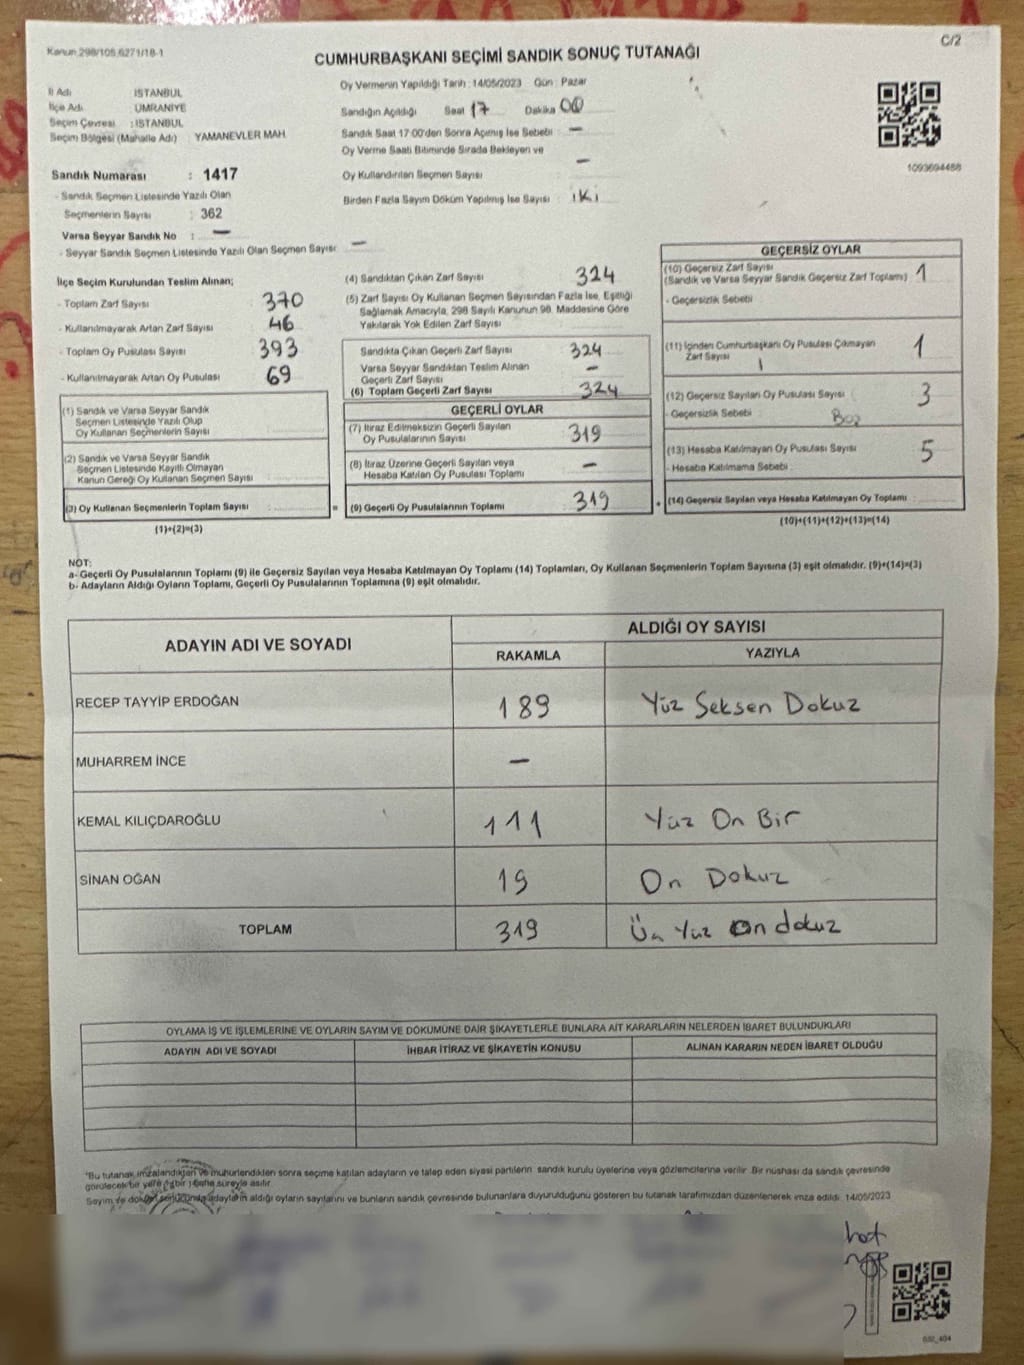 Kanun 298/105,6271/18-1
C/2
CUMHURBAŞKANI SEÇİMİ SANDIK SONUÇ TUTANAĞI
İl Adı İSTANBUL
İlçe Adı ÜMRANİYE
Seçim Çevresi : İSTANBUL
Seçim Bölgesi (Mahalle Adı) YAMANEVLER MAH.
Sandık Numarası : 1417
- Sandık Seçmen Listesinde Yazılı Olan
Seçmenlerin Sayısı : 362
Varsa Seyyar Sandık No : —
- Seyyar Sandık Seçmen Listesinde Yazılı Olan Seçmen Sayısı: —
Oy Vermenin Yapıldığı Tarih : 14/05/2023 Gün : Pazar
Sandığın Açıldığı Saat 17 Dakika 00
Sandık Saat 17:00'den Sonra Açılmış İse Sebebi —
Oy Verme Saati Bitiminde Sırada Bekleyen ve
Oy Kullandırılan Seçmen Sayısı —
Birden Fazla Sayım Döküm Yapılmış İse Sayısı : iki
1093694488
İlçe Seçim Kurulundan Teslim Alınan;
- Toplam Zarf Sayısı : 370
- Kullanılmayarak Artan Zarf Sayısı 46
- Toplam Oy Pusulası Sayısı : 393
- Kullanılmayarak Artan Oy Pusulası : 69
(1) Sandık ve Varsa Seyyar Sandık
Seçmen Listesinde Yazılı Olup
Oy Kullanan Seçmenlerin Sayısı
(2) Sandık ve Varsa Seyyar Sandık
Seçmen Listesinde Kayıtlı Olmayan
Kanun Gereği Oy Kullanan Seçmen Sayısı
(3) Oy Kullanan Seçmenlerin Toplam Sayısı =
(1)+(2)=(3)
(4) Sandıktan Çıkan Zarf Sayısı 324
(5) Zarf Sayısı Oy Kullanan Seçmen Sayısından Fazla İse, Eşitliği
Sağlamak Amacıyla, 298 Sayılı Kanunun 98. Maddesine Göre
Yakılarak Yok Edilen Zarf Sayısı
Sandıkta Çıkan Geçerli Zarf Sayısı 324
Varsa Seyyar Sandıktan Teslim Alınan
Geçerli Zarf Sayısı —
(6) Toplam Geçerli Zarf Sayısı 324
GEÇERLİ OYLAR
(7) İtiraz Edilmeksizin Geçerli Sayılan
Oy Pusulalarının Sayısı 319
(8) İtiraz Üzerine Geçerli Sayılan veya
Hesaba Katılan Oy Pusulası Toplamı —
(9) Geçerli Oy Pusulalarının Toplamı 319 +
GEÇERSİZ OYLAR
(10) Geçersiz Zarf Sayısı
(Sandık ve Varsa Seyyar Sandık Geçersiz Zarf Toplamı) 1
- Geçersizlik Sebebi
(11) İçinden Cumhurbaşkanı Oy Pusulası Çıkmayan
Zarf Sayısı 1
(12) Geçersiz Sayılan Oy Pusulası Sayısı 3
- Geçersizlik Sebebi Boş
(13) Hesaba Katılmayan Oy Pusulası Sayısı 5
- Hesaba Katılmama Sebebi
(14) Geçersiz Sayılan veya Hesaba Katılmayan Oy Toplamı
(10)+(11)+(12)+(13)=(14)
NOT:
a- Geçerli Oy Pusulalarının Toplamı (9) ile Geçersiz Sayılan veya Hesaba Katılmayan Oy Toplamı (14) Toplamları, Oy Kullanan Seçmenlerin Toplam Sayısına (3) eşit olmalıdır. (9)+(14)=(3)
b- Adayların Aldığı Oyların Toplamı, Geçerli Oy Pusulalarının Toplamına (9) eşit olmalıdır.
ADAYIN ADI VE SOYADI ALDIĞI OY SAYISI
RAKAMLA YAZIYLA
RECEP TAYYİP ERDOĞAN 189 Yüz Seksen Dokuz
MUHARREM İNCE —
KEMAL KILIÇDAROĞLU 111 Yüz On Bir
SİNAN OĞAN 19 On Dokuz
TOPLAM 319 Üç Yüz On dokuz
OYLAMA İŞ VE İŞLEMLERİNE VE OYLARIN SAYIM VE DÖKÜMÜNE DAİR ŞİKAYETLERLE BUNLARA AİT KARARLARIN NELERDEN İBARET BULUNDUKLARI
ADAYIN ADI VE SOYADI İHBAR İTİRAZ VE ŞİKAYETİN KONUSU ALINAN KARARIN NEDEN İBARET OLDUĞU
*Bu tutanak imzalandıktan ve mühürlendikten sonra seçime katılan adayların ve talep eden siyasi partilerin sandık kurulu üyelerine veya gözlemcilerine verilir. Bir nüshası da sandık çevresinde
görülecek bir yere (1 bir) hafta süreyle asılır.
Sayım ve döküm sonucunda adayların aldığı oyların sayılarını ve bunların sandık çevresinde bulunanlara duyurulduğunu gösteren bu tutanak tarafımızdan düzenlenerek imza edildi. 14/05/2023